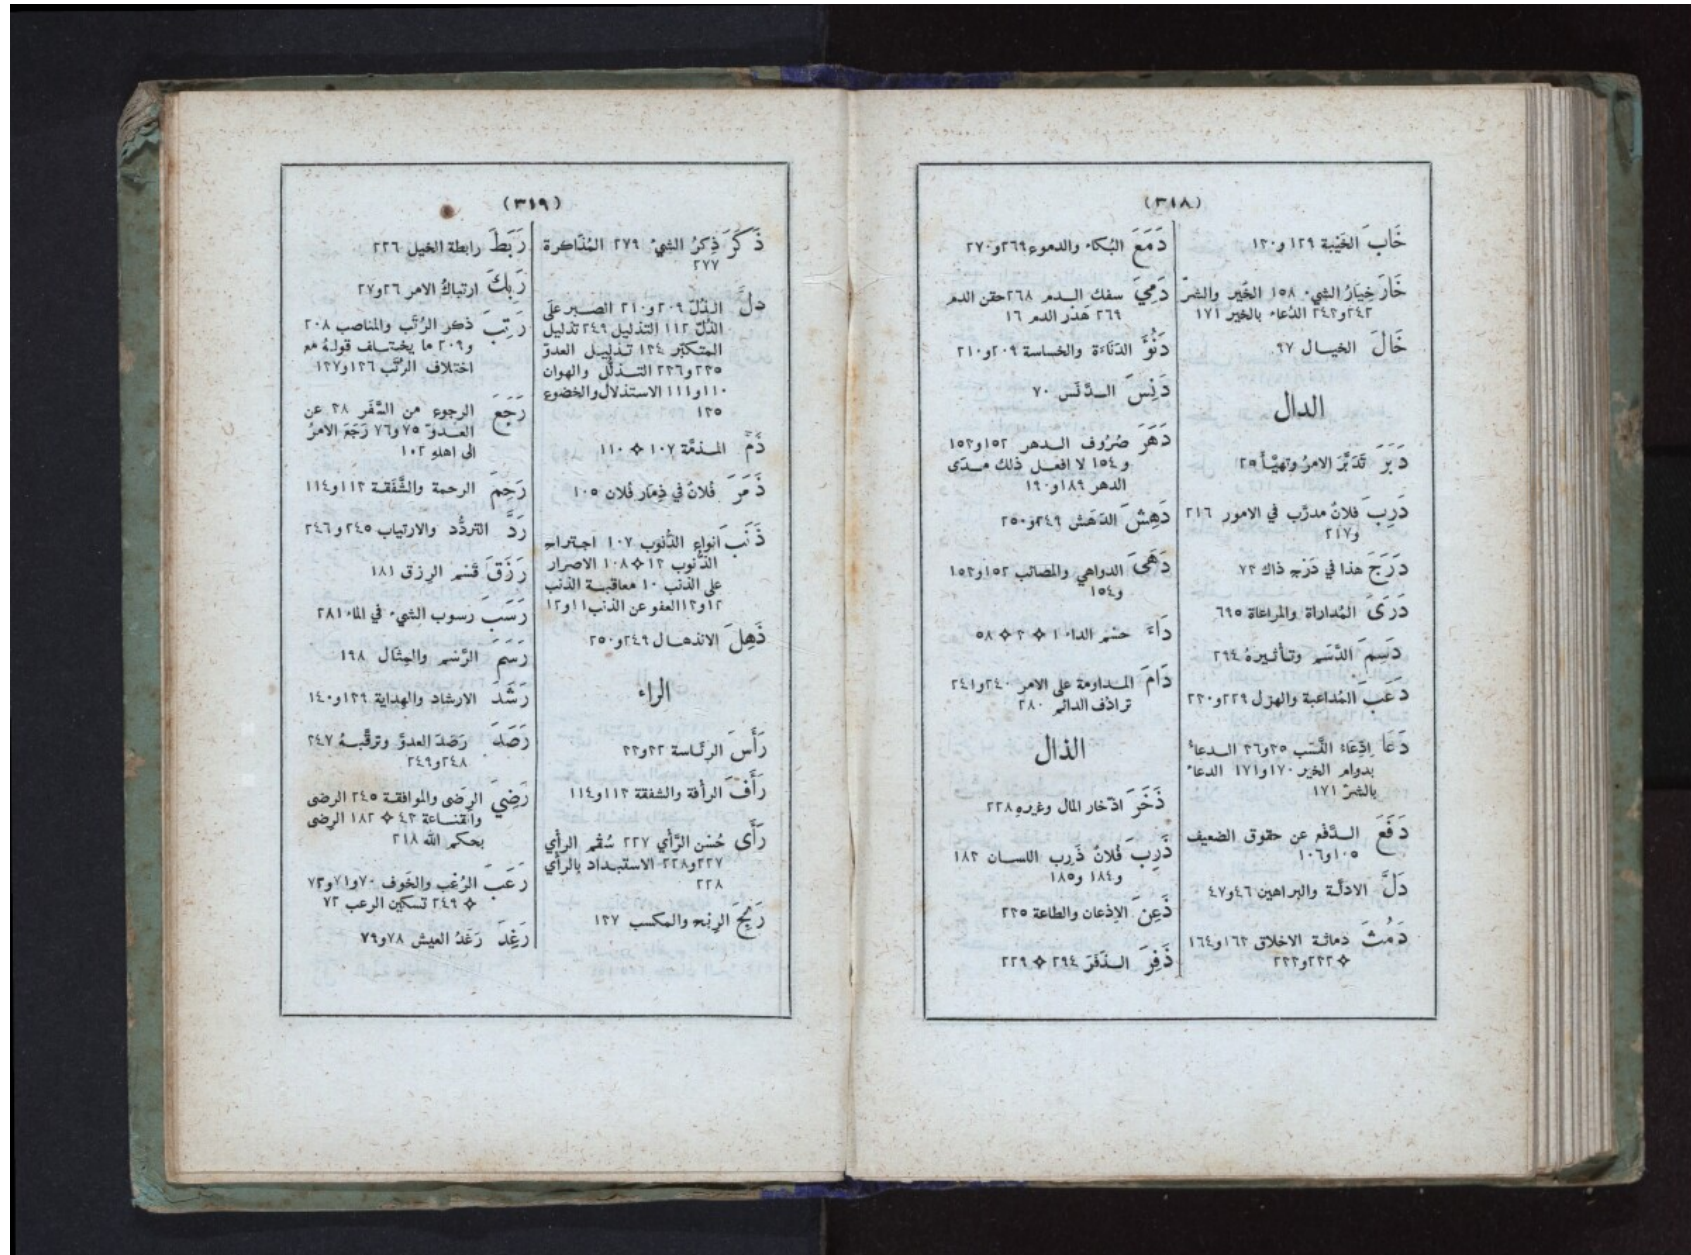 (٣١٨)
خَابَ الخَيْبة ١٢٩ و١٣٠
خَارَ خِيَارُ الشيء ١٥٨ الخَير والشرّ
٢٤٢و٢٤٣ الدُعاء بالخير ١٧١
خَالَ الخيال ٦٧
الدال
دَبَرَ تَدَبَّرَ الامرُ وتهيَّأ ٢٥
دَرِبَ فلانٌ مدرَّب في الامور ٢١٦
و٢١٧
دَرَجَ هذا في دَرْجِ ذاك ٧٣
دَرَى المُداراة والمراعاة ٦٩٥
دَسِمَ الدَّسَم وتأثيرهُ ٢٩٤
دَعَبَ المُداعبة والهزل ٢٢٩و٢٣٠
دَعَا اِدّعاء النَّسَب ٢٥و٢٦ الدعاءُ
بدوام الخير ١٧٠و١٧١ الدعاء
بالشرّ ١٧١
دَفَعَ الدَّفْع عن حقوق الضعيف
١٠٥و١٠٦
دَلَّ الادلَّة والبراهين ٤٦و٤٧
دَمُثَ دماثة الاخلاق ١٦٣و١٦٤
✧ ٢٢٢و٢٢٣
دَمَعَ البُكاء والدموع ٢٦٩و٢٧٠
دَمِيَ سفك الدم ٢٦٨ حقن الدم
٢٦٩ هَدَر الدم ١٦
دَنُؤَ الدَنَاءَة والخساسة ٢٠٩و٢١٠
دَنِسَ الدَّنَس ٧٠
دَهَرَ صُرُوف الدهر ١٥٢و١٥٣
و١٥٤ لا افعل ذلك مدَى
الدهر ١٨٩و١٩٠
دَهِشَ الدَهَش ٢٤٩و٢٥٠
دَهَى الدواهي والمصائب ١٥٢و١٥٣
و١٥٤
دَاءَ حسم الداء ١ ✧ ٢ ✧ ٥٨
دَامَ المداومة على الامر ٢٤٠و٢٤١
ترادُف الدائم ٢٨٠
الذال
ذَخَرَ ادّخار المال وغيرهِ ٢٢٨
ذَرِبَ فُلانٌ ذَرِب اللسان ١٨٣
و١٨٤ و١٨٥
ذَعِنَ الاِذعان والطاعة ٢٣٥
ذَفِرَ الذَفَر ٢٩٤ ✧ ٢٢٩
(٣١٩)
ذَكَرَ ذِكرُ الشيْ ٢٧٩ المُذَاكرة
٢٧٧
ذلَّ الذُلّ ٢٠٩و٢١٠ الصبر على
الذُلّ ١١٢ التذليل ٢٤٩ تذليل
المتكبّر ١٣٤ تذليل العدوّ
٢٣٥و٢٣٦ التذلُّل والهوان
١١٠و١١١ الاستذلال والخضوع
١٣٥
ذَمَّ المذمَّة ١٠٧ ✧ ١١٠
ذَمَرَ فُلانٌ في ذِمَار فُلان ١٠٥
ذَنَبَ انواع الذُّنوب ١٠٧ اجتراح
الذُّنوب ١٢ ✧ ١٠٨ الاصرار
على الذنب ١٠ معاقبة الذنب
١٢و١٣ العفو عن الذنب ١١و١٢
ذَهِلَ الاندهال ٢٤٩و٢٥٠
الراء
رَأَسَ الرِئَاسة ٢٢و٢٣
رَأَفَ الرأفة والشفقة ١١٣و١١٤
رَأَى حُسْن الرَّأْي ٢٢٧ سُقْم الرأْي
٢٢٧و٢٢٨ الاستبداد بالرأْي
٢٢٨
رَبِحَ الرِبْح والمكسب ١٣٧
رَبَطَ رابطة الخيل ٢٢٦
رَبِكَ ارتباكُ الامر ٢٦و٢٧
رَتِبَ ذكر الرُتَب والمناصب ٢٠٨
و٢٠٩ ما يختلف قولهُ مع
اختلاف الرُتَب ١٣٦و١٣٧
رَجَعَ الرجوع من السَّفَر ٢٨ عن
العدوّ ٧٥ و٧٦ رَجَعَ الامرُ
الى اهلهِ ١٠٢
رَحِمَ الرحمة والشَّفَقة ١١٣و١١٤
رَدَّ التردُّد والارتياب ٢٤٥و٢٤٦
رَزَقَ قَسْم الرِزق ١٨١
رَسَبَ رسوب الشيء في الماء ٢٨١
رَسَمَ الرَّسْم والمِثَال ١٩٨
رَشَدَ الارشاد والهداية ١٣٩و١٤٠
رَصَدَ رَصْد العدوّ وترقُّبهُ ٢٤٧
٢٤٨و٢٤٩
رَضِيَ الرضَى والموافقة ٢٤٥ الرضى
والقناعة ٤٣ ✧ ١٨٢ الرِضى
بحكم الله ٢١٨
رَعَبَ الرُعْب والخَوف ٧٠و٧١و٧٣
✧ ٢٤٩ تسكين الرعب ٧٢
رَغِدَ رَغَدُ العيش ٧٨و٧٩